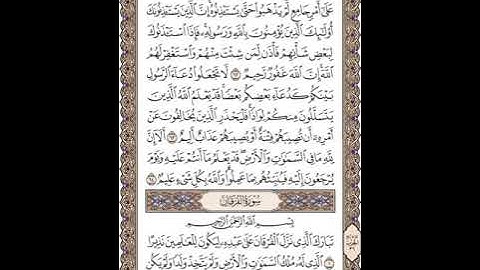 عَلَىٰ أَمْرٍ جَامِعٍ لَّمْ يَذْهَبُوا۟ حَتَّىٰ يَسْتَـْٔذِنُوهُ إِنَّ ٱلَّذِينَ يَسْتَـْٔذِنُونَكَ
أُو۟لَـٰٓئِكَ ٱلَّذِينَ يُؤْمِنُونَ بِٱللَّهِ وَرَسُولِهِۦ فَإِذَا ٱسْتَـْٔذَنُوكَ
لِبَعْضِ شَأْنِهِمْ فَأْذَن لِّمَن شِئْتَ مِنْهُمْ وَٱسْتَغْفِرْ لَهُمُ
ٱللَّهَ إِنَّ ٱللَّهَ غَفُورٌ رَّحِيمٌ ٦٢ لَّا تَجْعَلُوا۟ دُعَآءَ ٱلرَّسُولِ
بَيْنَكُمْ كَدُعَآءِ بَعْضِكُم بَعْضًا قَدْ يَعْلَمُ ٱللَّهُ ٱلَّذِينَ
يَتَسَلَّلُونَ مِنكُمْ لِوَاذًا فَلْيَحْذَرِ ٱلَّذِينَ يُخَالِفُونَ عَنْ
أَمْرِهِۦٓ أَن تُصِيبَهُمْ فِتْنَةٌ أَوْ يُصِيبَهُمْ عَذَابٌ أَلِيمٌ ٦٣ أَلَآ إِنَّ
لِلَّهِ مَا فِى ٱلسَّمَـٰوَٰتِ وَٱلْأَرْضِ قَدْ يَعْلَمُ مَآ أَنتُمْ عَلَيْهِ وَيَوْمَ
يُرْجَعُونَ إِلَيْهِ فَيُنَبِّئُهُم بِمَا عَمِلُوا۟ وَٱللَّهُ بِكُلِّ شَىْءٍ عَلِيمٌ ٦٤
سُورَةُ الْفُرْقَانِ
بِسْمِ ٱللَّهِ ٱلرَّحْمَـٰنِ ٱلرَّحِيمِ
تَبَارَكَ ٱلَّذِى نَزَّلَ ٱلْفُرْقَانَ عَلَىٰ عَبْدِهِۦ لِيَكُونَ لِلْعَـٰلَمِينَ نَذِيرًا
١ ٱلَّذِى لَهُۥ مُلْكُ ٱلسَّمَـٰوَٰتِ وَٱلْأَرْضِ وَلَمْ يَتَّخِذْ وَلَدًا وَلَمْ يَكُن